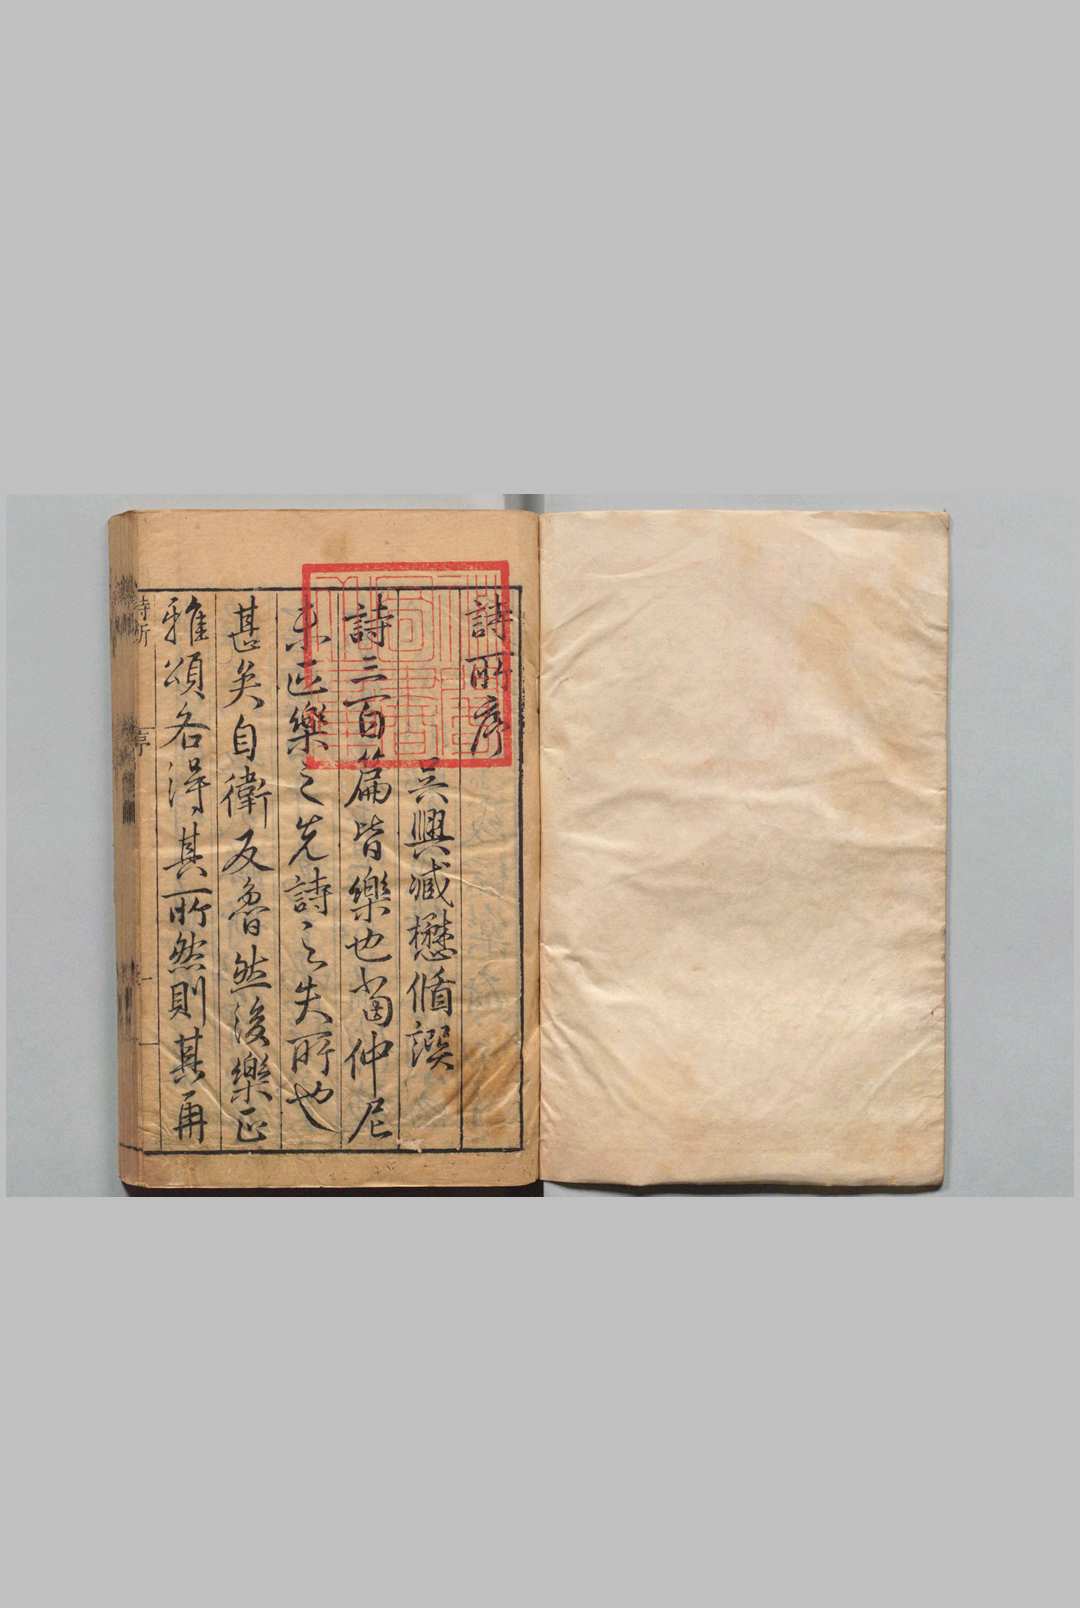 詩所序
吳興臧懋循譔
詩三百篇皆樂也當仲尼
未正樂之先詩之失所也
甚矣自衛反魯然後樂正
雅頌各得其所然則其再
詩所
序
一